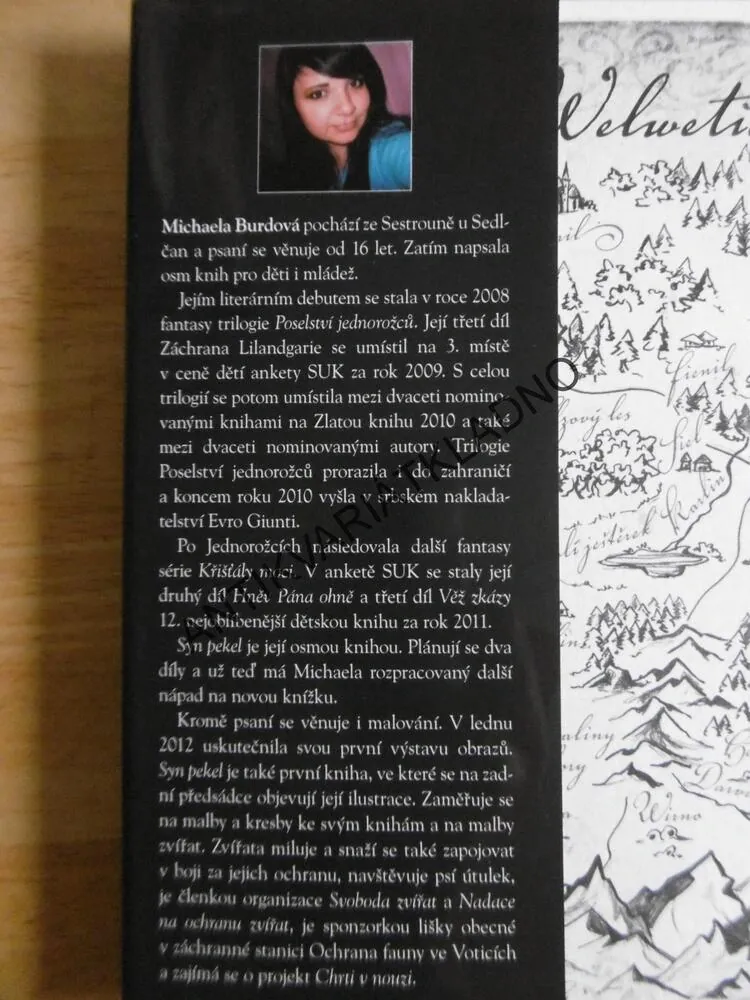 Michaela Burdová pochází ze Sestrouně u Sedl-
čan a psaní se věnuje od 16 let. Zatím napsala
osm knih pro děti i mládež.
Jejím literárním debutem se stala v roce 2008
fantasy trilogie Poselství jednorožců. Její třetí díl
Záchrana Lilandgarie se umístil na 3. místě
v ceně dětí ankety SUK za rok 2009. S celou
trilogií se potom umístila mezi dvaceti nomino-
vanými knihami na Zlatou knihu 2010 a také
mezi dvaceti nominovanými autory. Trilogie
Poselství jednorožců prorazila i do zahraničí
a koncem roku 2010 vyšla v srbském naklada-
telství Evro Giunti.
Po Jednorožcích následovala další fantasy
série Křišťály moci. V anketě SUK se staly její
druhý díl Hněv Pána ohně a třetí díl Věž zkázy
12. nejoblíbenější dětskou knihu za rok 2011.
Syn pekel je její osmou knihou. Plánují se dva
díly a už teď má Michaela rozpracovaný další
nápad na novou knížku.
Kromě psaní se věnuje i malování. V lednu
2012 uskutečnila svou první výstavu obrazů.
Syn pekel je také první kniha, ve které se na zad-
ní předsádce objevují její ilustrace. Zaměřuje se
na malby a kresby ke svým knihám a na malby
zvířat. Zvířata miluje a snaží se také zapojovat
v boji za jejich ochranu, navštěvuje psí útulek,
je členkou organizace Svoboda zvířat a Nadace
na ochranu zvířat, je sponzorkou lišky obecné
v záchranné stanici Ochrana fauny ve Voticích
a zajímá se o projekt Chrti v nouzi.
ANTIKVARIÁT KLADNO
Welweti
Fienil
les
Siel
jestřírek
Karlin
Wirno